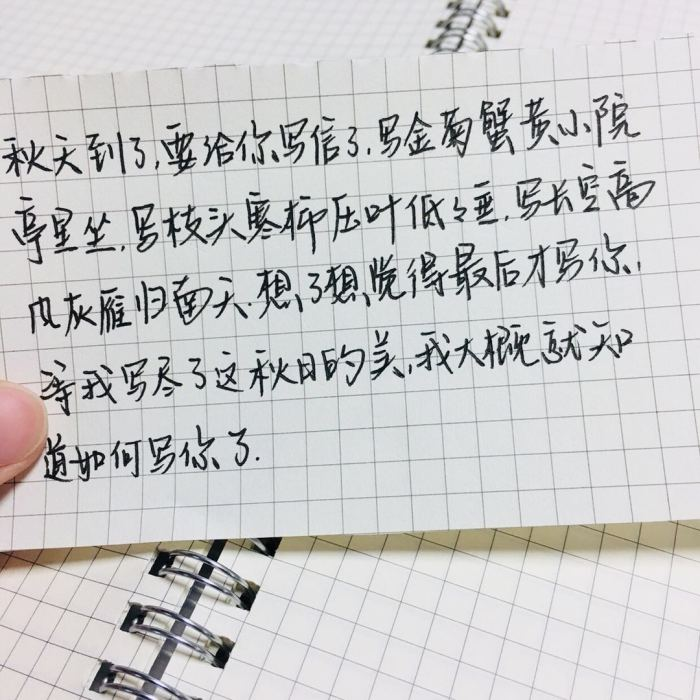 秋天到了,要给你写信了,写金菊蟹黄小院
亭里坐,写枝头寒柿压叶低々垂,写长空高
风灰雁归南天.想了想,觉得最后才写你,
等我写尽了这秋日的美,我大概就知
道如何写你了.